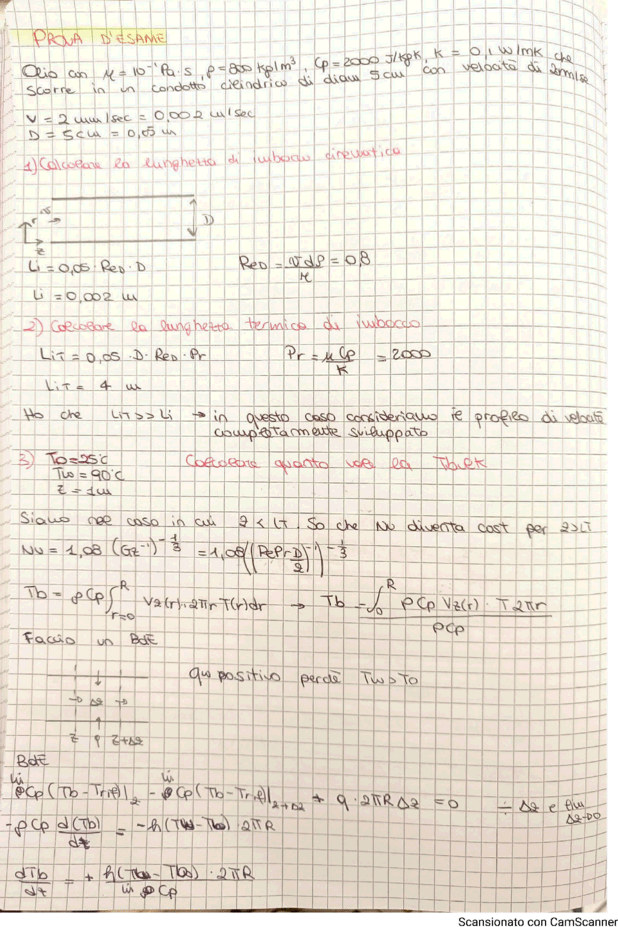 PROVA D'ESAME
Olio con μ = 10⁻¹ Pa·s, ρ=800 kg/m³, Cp=2000 J/kgK, K = 0,1 W/mK che
scorre in un condotto cilindrico di diam 5cm con velocità di 2mm/sec
V = 2 mm/sec = 0,002 m/sec
D = 5cm = 0,05 m
1) Calcolare la lunghezza di imbocco cinematica
r v D
z
Li = 0,05 · ReD · D ReD = vdρ/μ = 0,8
Li = 0,002 m
2) Calcolare la lunghezza termica di imbocco
LiT = 0,05 · D · ReD · Pr Pr = μCp/K = 2000
LiT = 4 m
Ho che LiT >> Li → in questo caso consideriamo il profilo di velocità
completamente sviluppato
3) To = 25°C Calcolare quanto vale la Tbulk
Tw = 90°C
z = 1m
Siamo nel caso in cui z < LT. So che Nu diventa cost per z>LT
Nu = 1,08 (Gz⁻¹)^-1/3 = 1,08((RePrD/z)⁻¹)^-1/3
Tb = ρCp∫_{r=0}^{R} Vz(r)·2πr T(r)dr → Tb = ∫_0^R ρCp Vz(r) · T 2πr / ρCp
Faccio un BdE
qw positivo perché Tw>To
→ Δz →
z q z+Δz
BdE
ẇ Cp(Tb-Trif)|z - ẇ Cp(Tb-Trif)|z+Δz + q · 2πRΔz = 0 ÷ Δz e lim Δz→0
-ρCp d(Tb)/dz = -h(Tw-Tb) 2πR
dTb/dz = + h(Tw-Tb) · 2πR / ẇ Cp
Scansionato con CamScanner